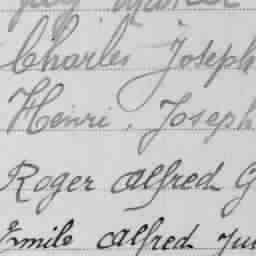 Charles Joseph
Henri, Joseph
Roger Alfred G
Emile Alfred Ju